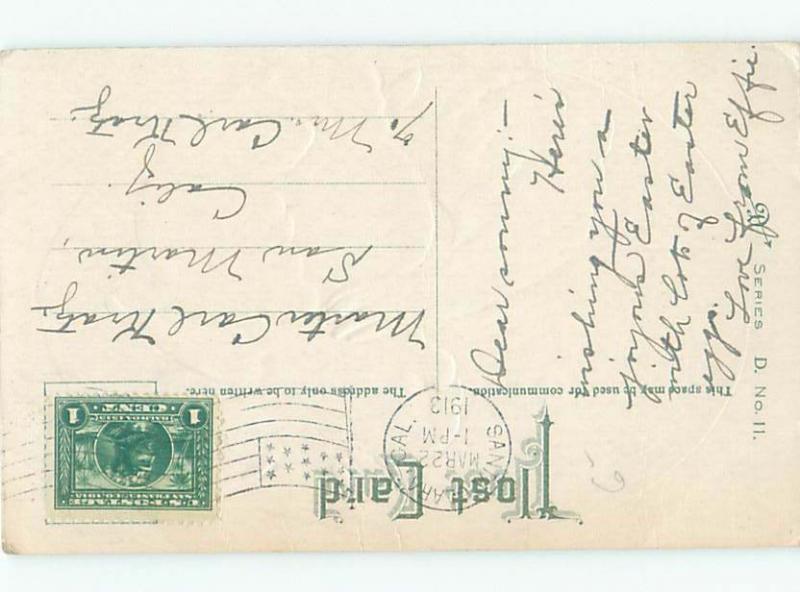 Post Card
This space may be used for communication.
The address only to be written here.
SAN
CAL.
MAR 22
1-PM
1913
U.S. POSTAGE
SAN FRANCISCO
1 CENT 1
Dear sonny:-
Here's
wishing you a
joyous Easter
with lots Easter
eggs.
Love from Effie.
Master Carl Kratz,
San Martin,
Calif.
% Mrs. Carl Kratz.
SERIES D. No. 11.